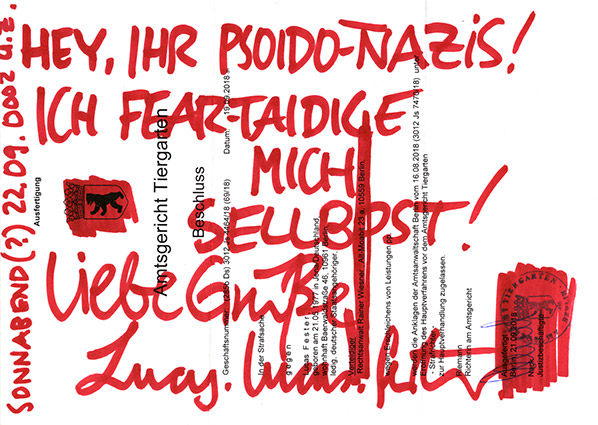 HEY, IHR PSOIDO-NAZIS!
ICH FEARTAIDIGE
MICH
SELLBPST!
Liebe Grüße
Lucas.
SONNABEND(?) 22.09.
Ausfertigung
Amtsgericht Tiergarten
Beschluss
Geschäftsnummer: Ds) 3012 Js 4464/18 (69/18)
Datum: 19.09.2018
In der Strafsache
gegen
Lucas Fester
geboren am 21.05.1977 in Deutschland
wohnhaft Baerwaldstraße 46, 10961 Berlin,
ledig, deutscher Staatsangehöriger,
Verteidiger
Rechtsanwalt Rainer Wiesner, Alt-Moabit 23 a, 10559 Berlin,
wegen Erschleichens von Leistungen pp.
werden die Anklagen der Amtsanwaltschaft Berlin vom 16.08.2018 (3012 Js 7470/18) unter
Eröffnung des Hauptverfahrens vor dem Amtsgericht Tiergarten
- Strafrichter -
zur Hauptverhandlung zugelassen.
Riemann
Richterin am Amtsgericht
Ausgefertigt
Berlin, 21.09.2018
Justizbeschäftigte
TIERGARTEN